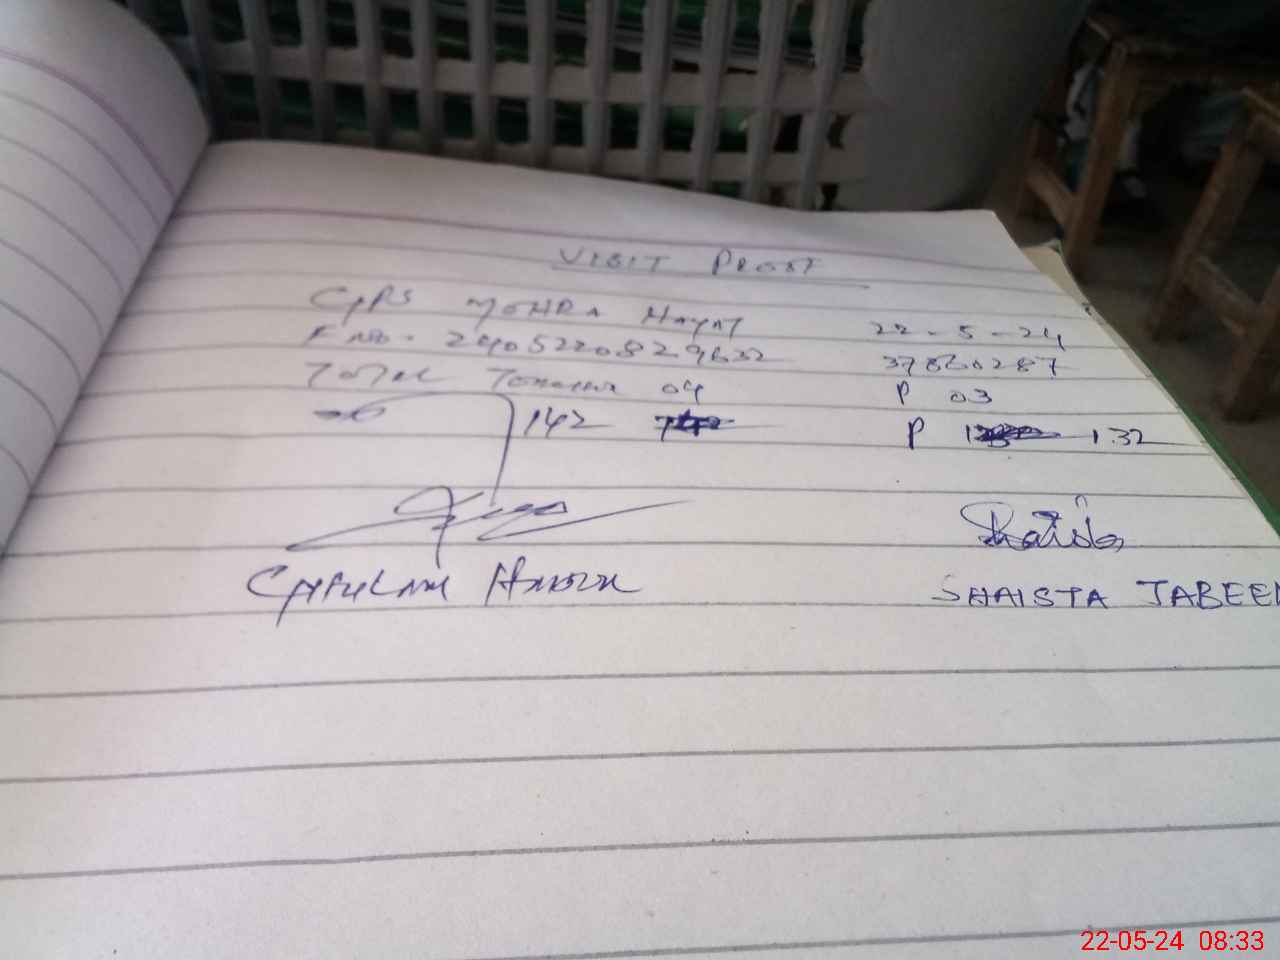 VISIT PROOF
GPS MOHRA HAYAT 22-5-24
F no. 2405220829632 37860287
TOTAL Teacher 04 P 03
142 P 132
SHAISTA JABEEN
22-05-24 08:33